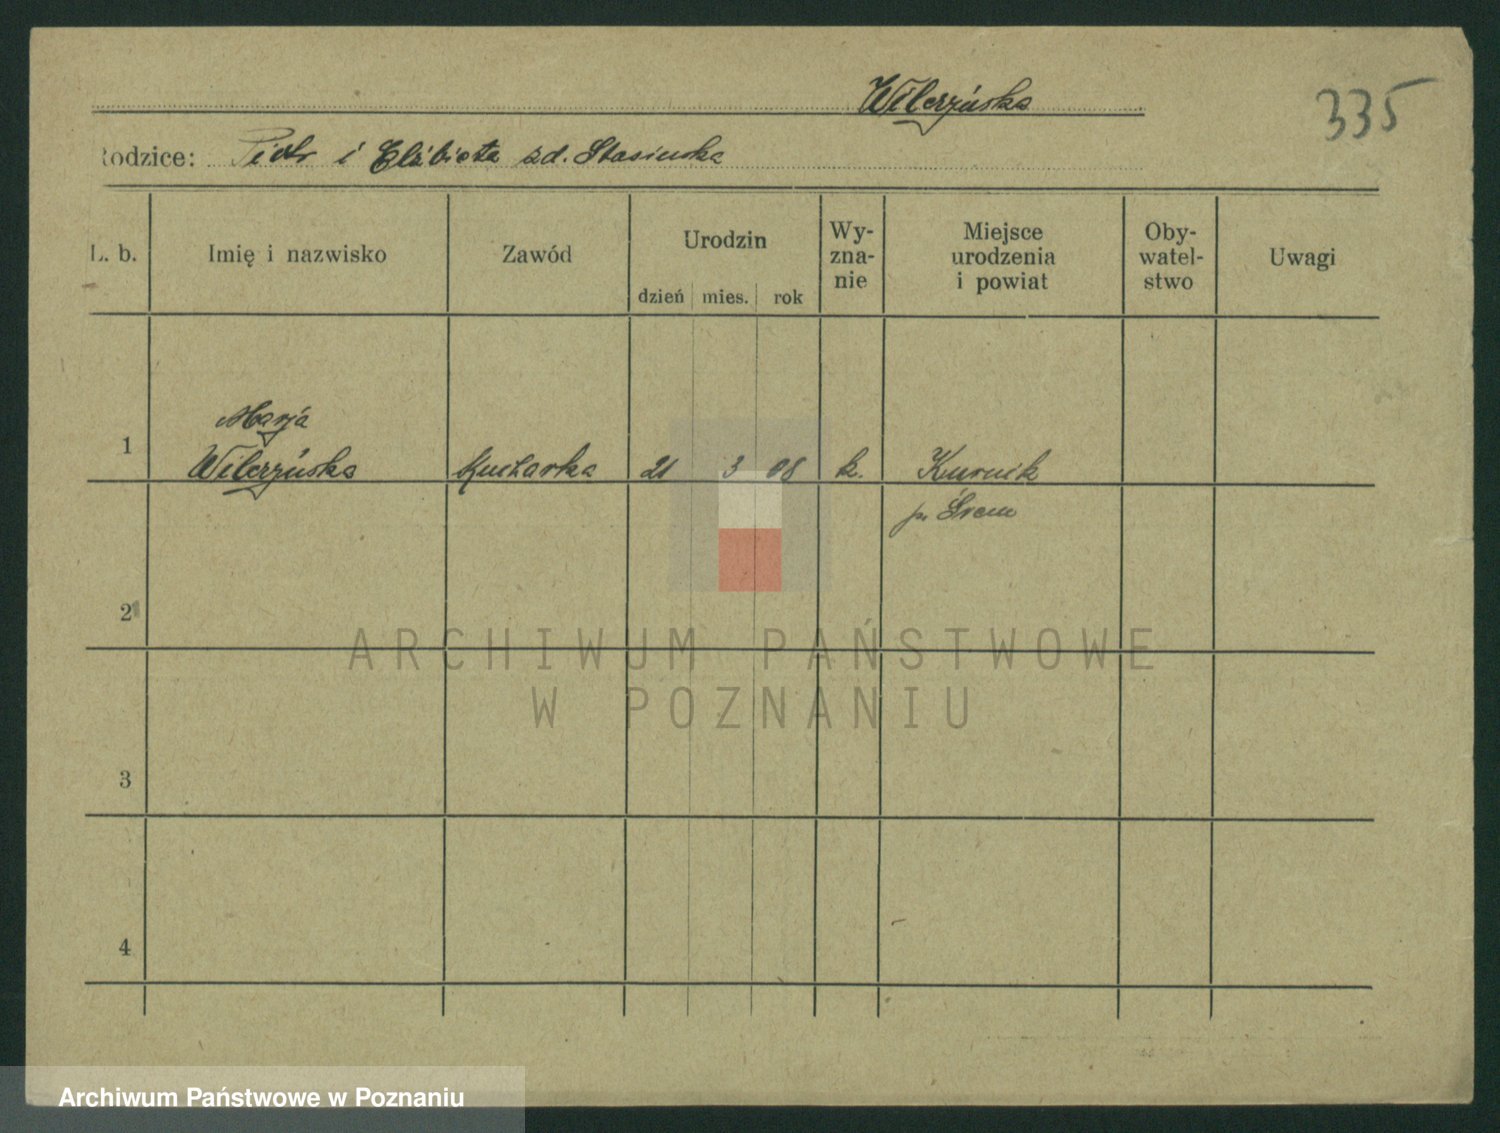 Wilczyńska
335
Rodzice: Piotr i Elżbieta zd. Stasińska
L. b.
Imię i nazwisko
Zawód
Urodzin
dzień mies. rok
Wy-
zna-
nie
Miejsce
urodzenia
i powiat
Oby-
watel-
stwo
Uwagi
1
Marja
Wilczyńska
Kucharka
21 3 08
k.
Kurnik
p. Śrem
2
3
4
ARCHIWUM PAŃSTWOWE
W POZNANIU
Archiwum Państwowe w Poznaniu